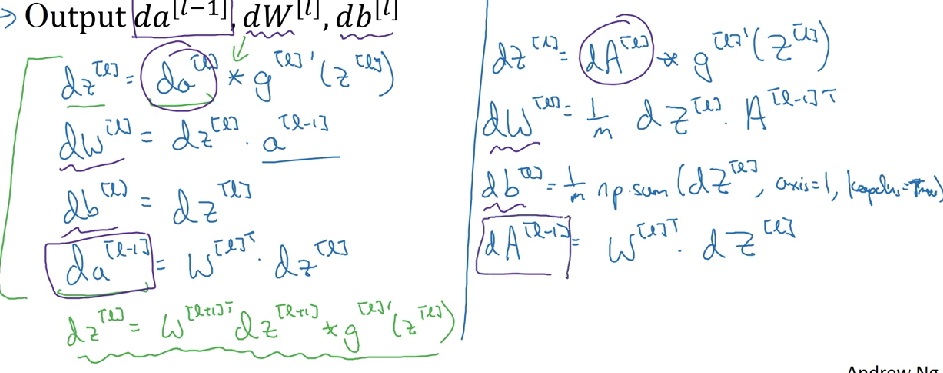 → Output da^[l-1], dW^[l], db^[l]
dz^[l] = da^[l] * g^[l]'(z^[l])
dW^[l] = dz^[l] · a^[l-1]
db^[l] = dz^[l]
da^[l-1] = W^[l]T · dz^[l]
dz^[l] = W^[l+1]T dz^[l+1] * g^[l]'(z^[l])
dZ^[l] = dA^[l] * g^[l]'(Z^[l])
dW^[l] = 1/m dZ^[l] · A^[l-1]T
db^[l] = 1/m np.sum(dZ^[l], axis=1, keepdims=True)
dA^[l-1] = W^[l]T · dZ^[l]
Andrew Ng